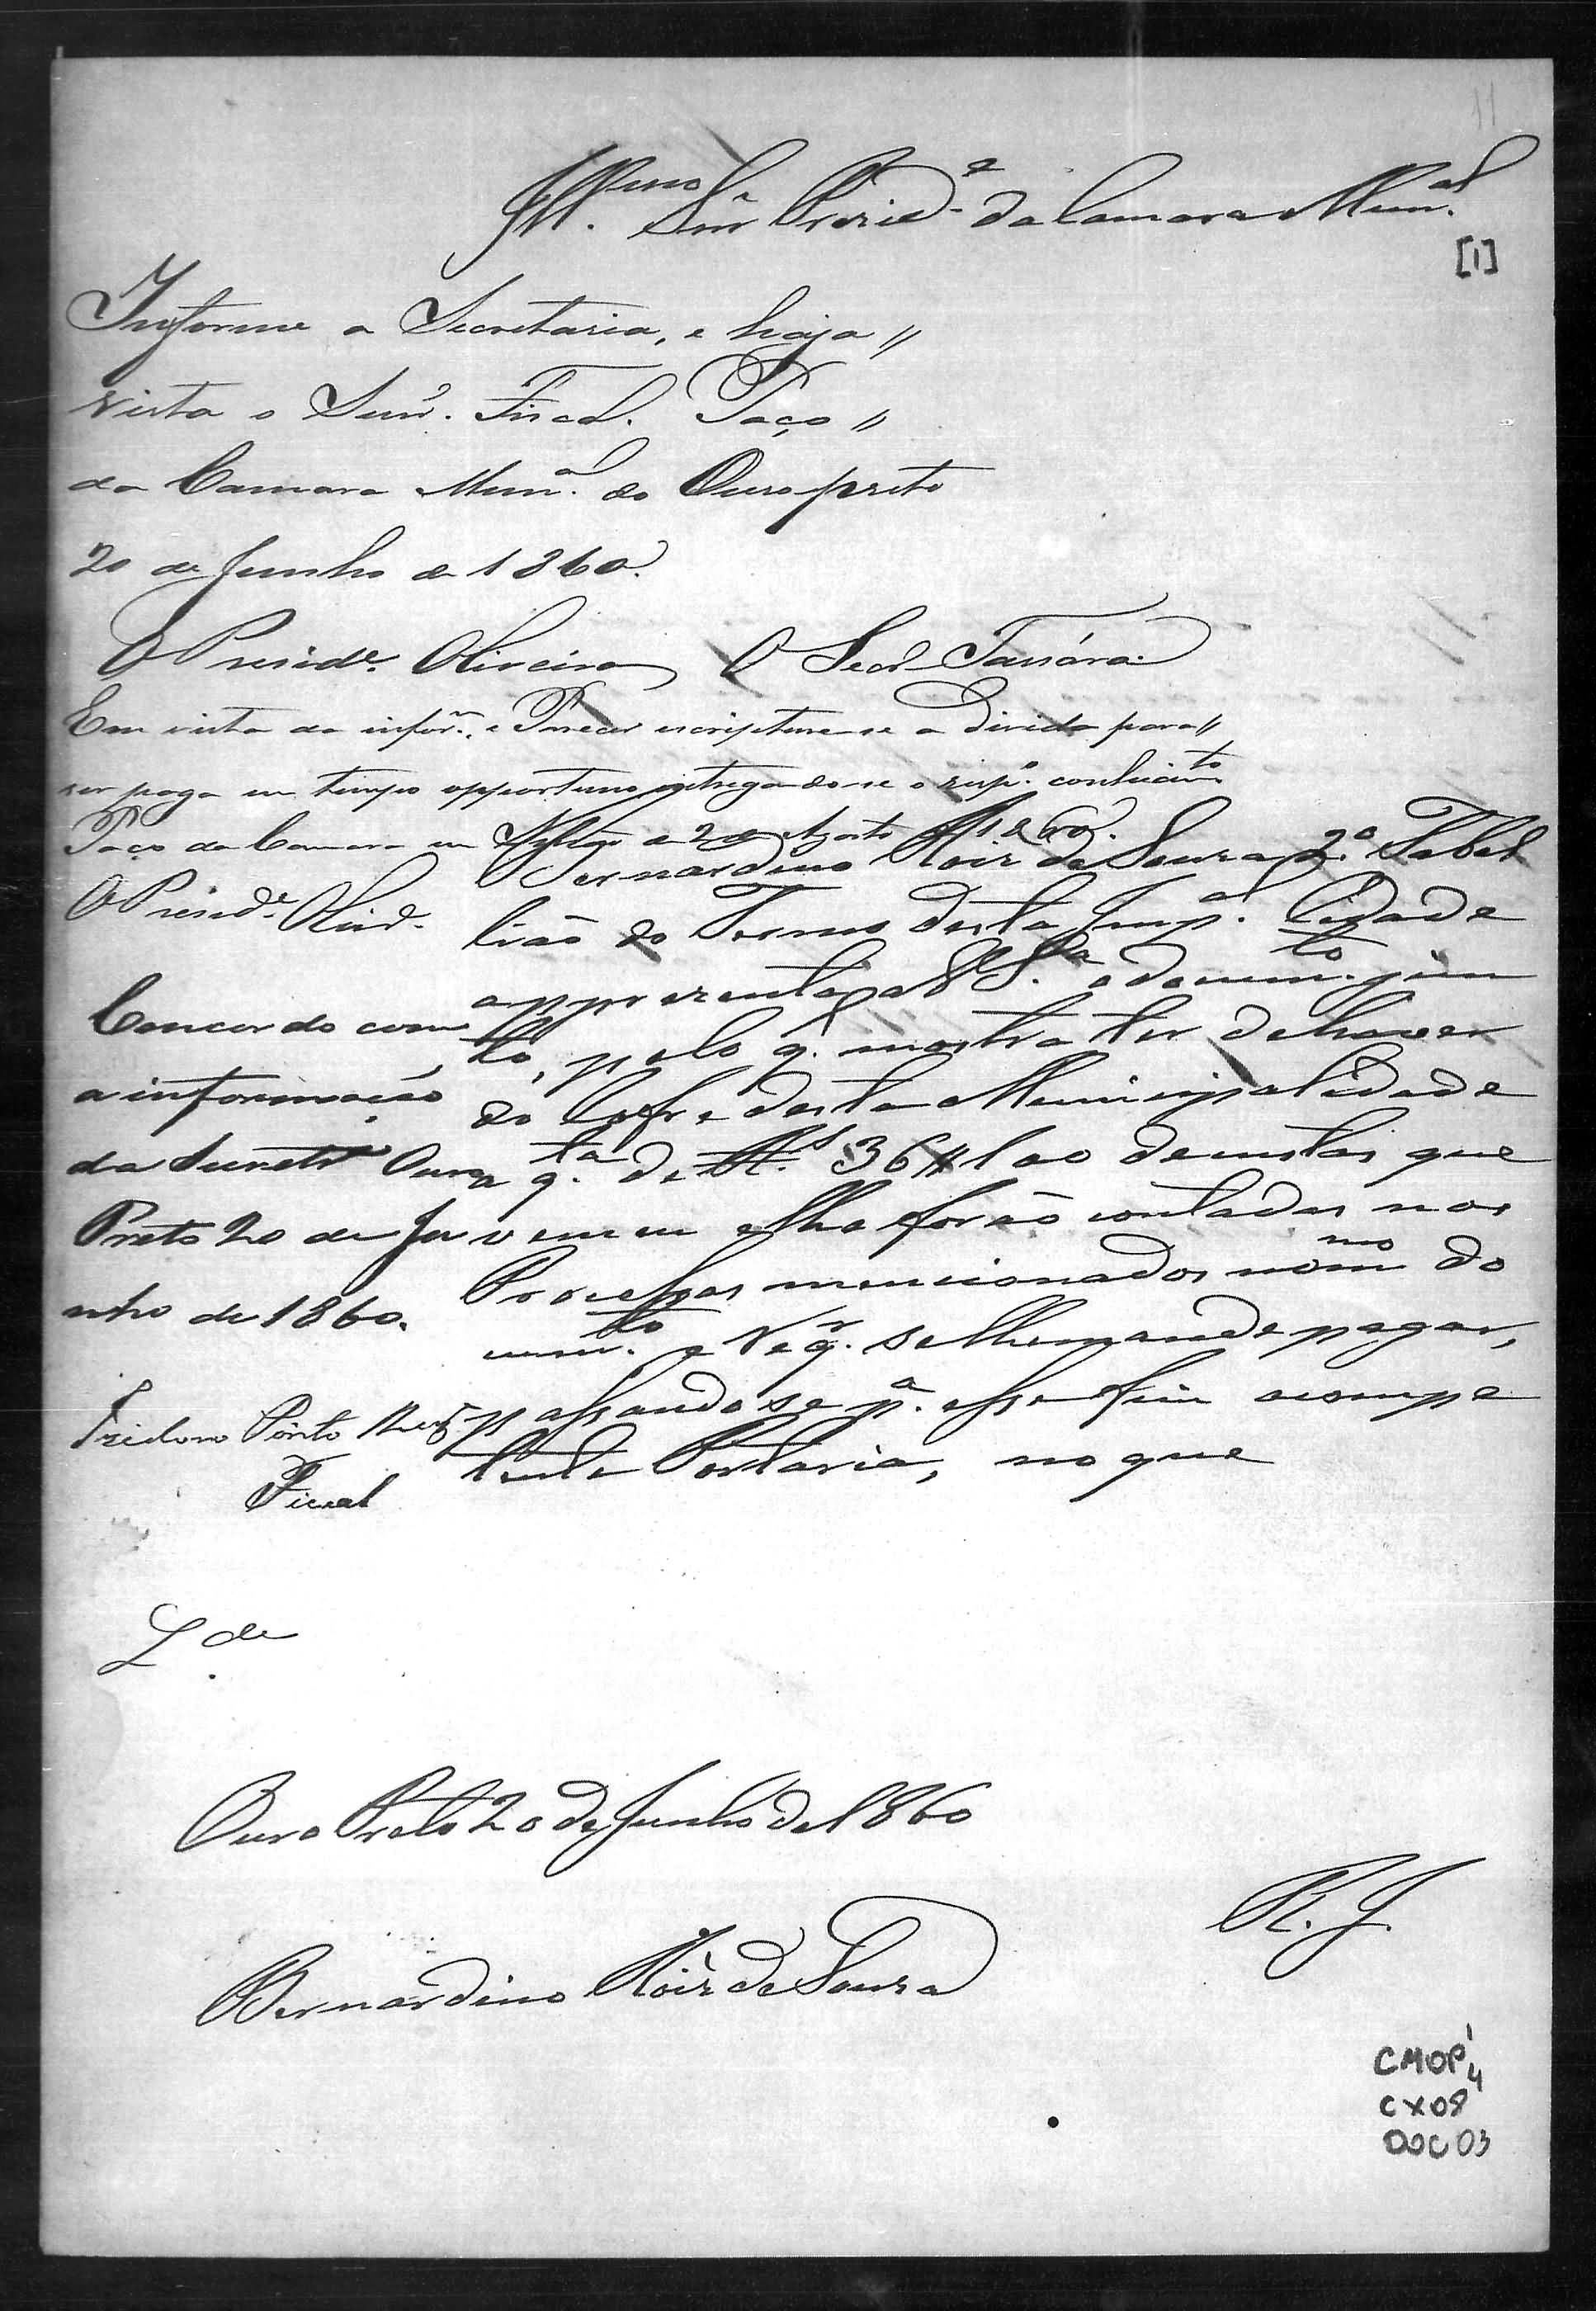 11
Ill.mo Snr. Prezid.e da Camara Mun.al
[1]
Informe a Secretaria, e haja //
vista o Senr. Fiscal. Paço //
da Camara Mun.al do Ouro preto
20 de Junho de 1860.
O Presid.e Oliveira O Secr. Tassára
Em vista da infor.m e Parecer escripture-se a divida para //
ser paga em tempo opportuno entregando-se o resp.o conhecim.to
Paço da Camara em de Agosto 1860.
O Presid.e Oliv.ra
Bernardino Roiz de Souza 2.o Tabel
lião do Termo desta Imp.al Cidade
appresenta a V S.a o docum.to jun
to, pelo q. mostra ter de haver
do Cofre desta Municipalidade
a q.ta de R.s 36$100 de custas que
venceu e lhe forão contadas nos
Processos mencionados no m.mo do
cum.to e V e q.r se lhe mande pagar,
passando se p.a esse fim a compe
tente Portaria, no que
Concordo com
a informação
da Secret.a Ouro
Preto 20 de Ju
nho de 1860.
Izidoro Pinto
Fiscal
L de
Ouro Preto 20 de Junho de 1860
R. J.
Bernardino Roiz de Souza
CMOP
CX08
DOC 03